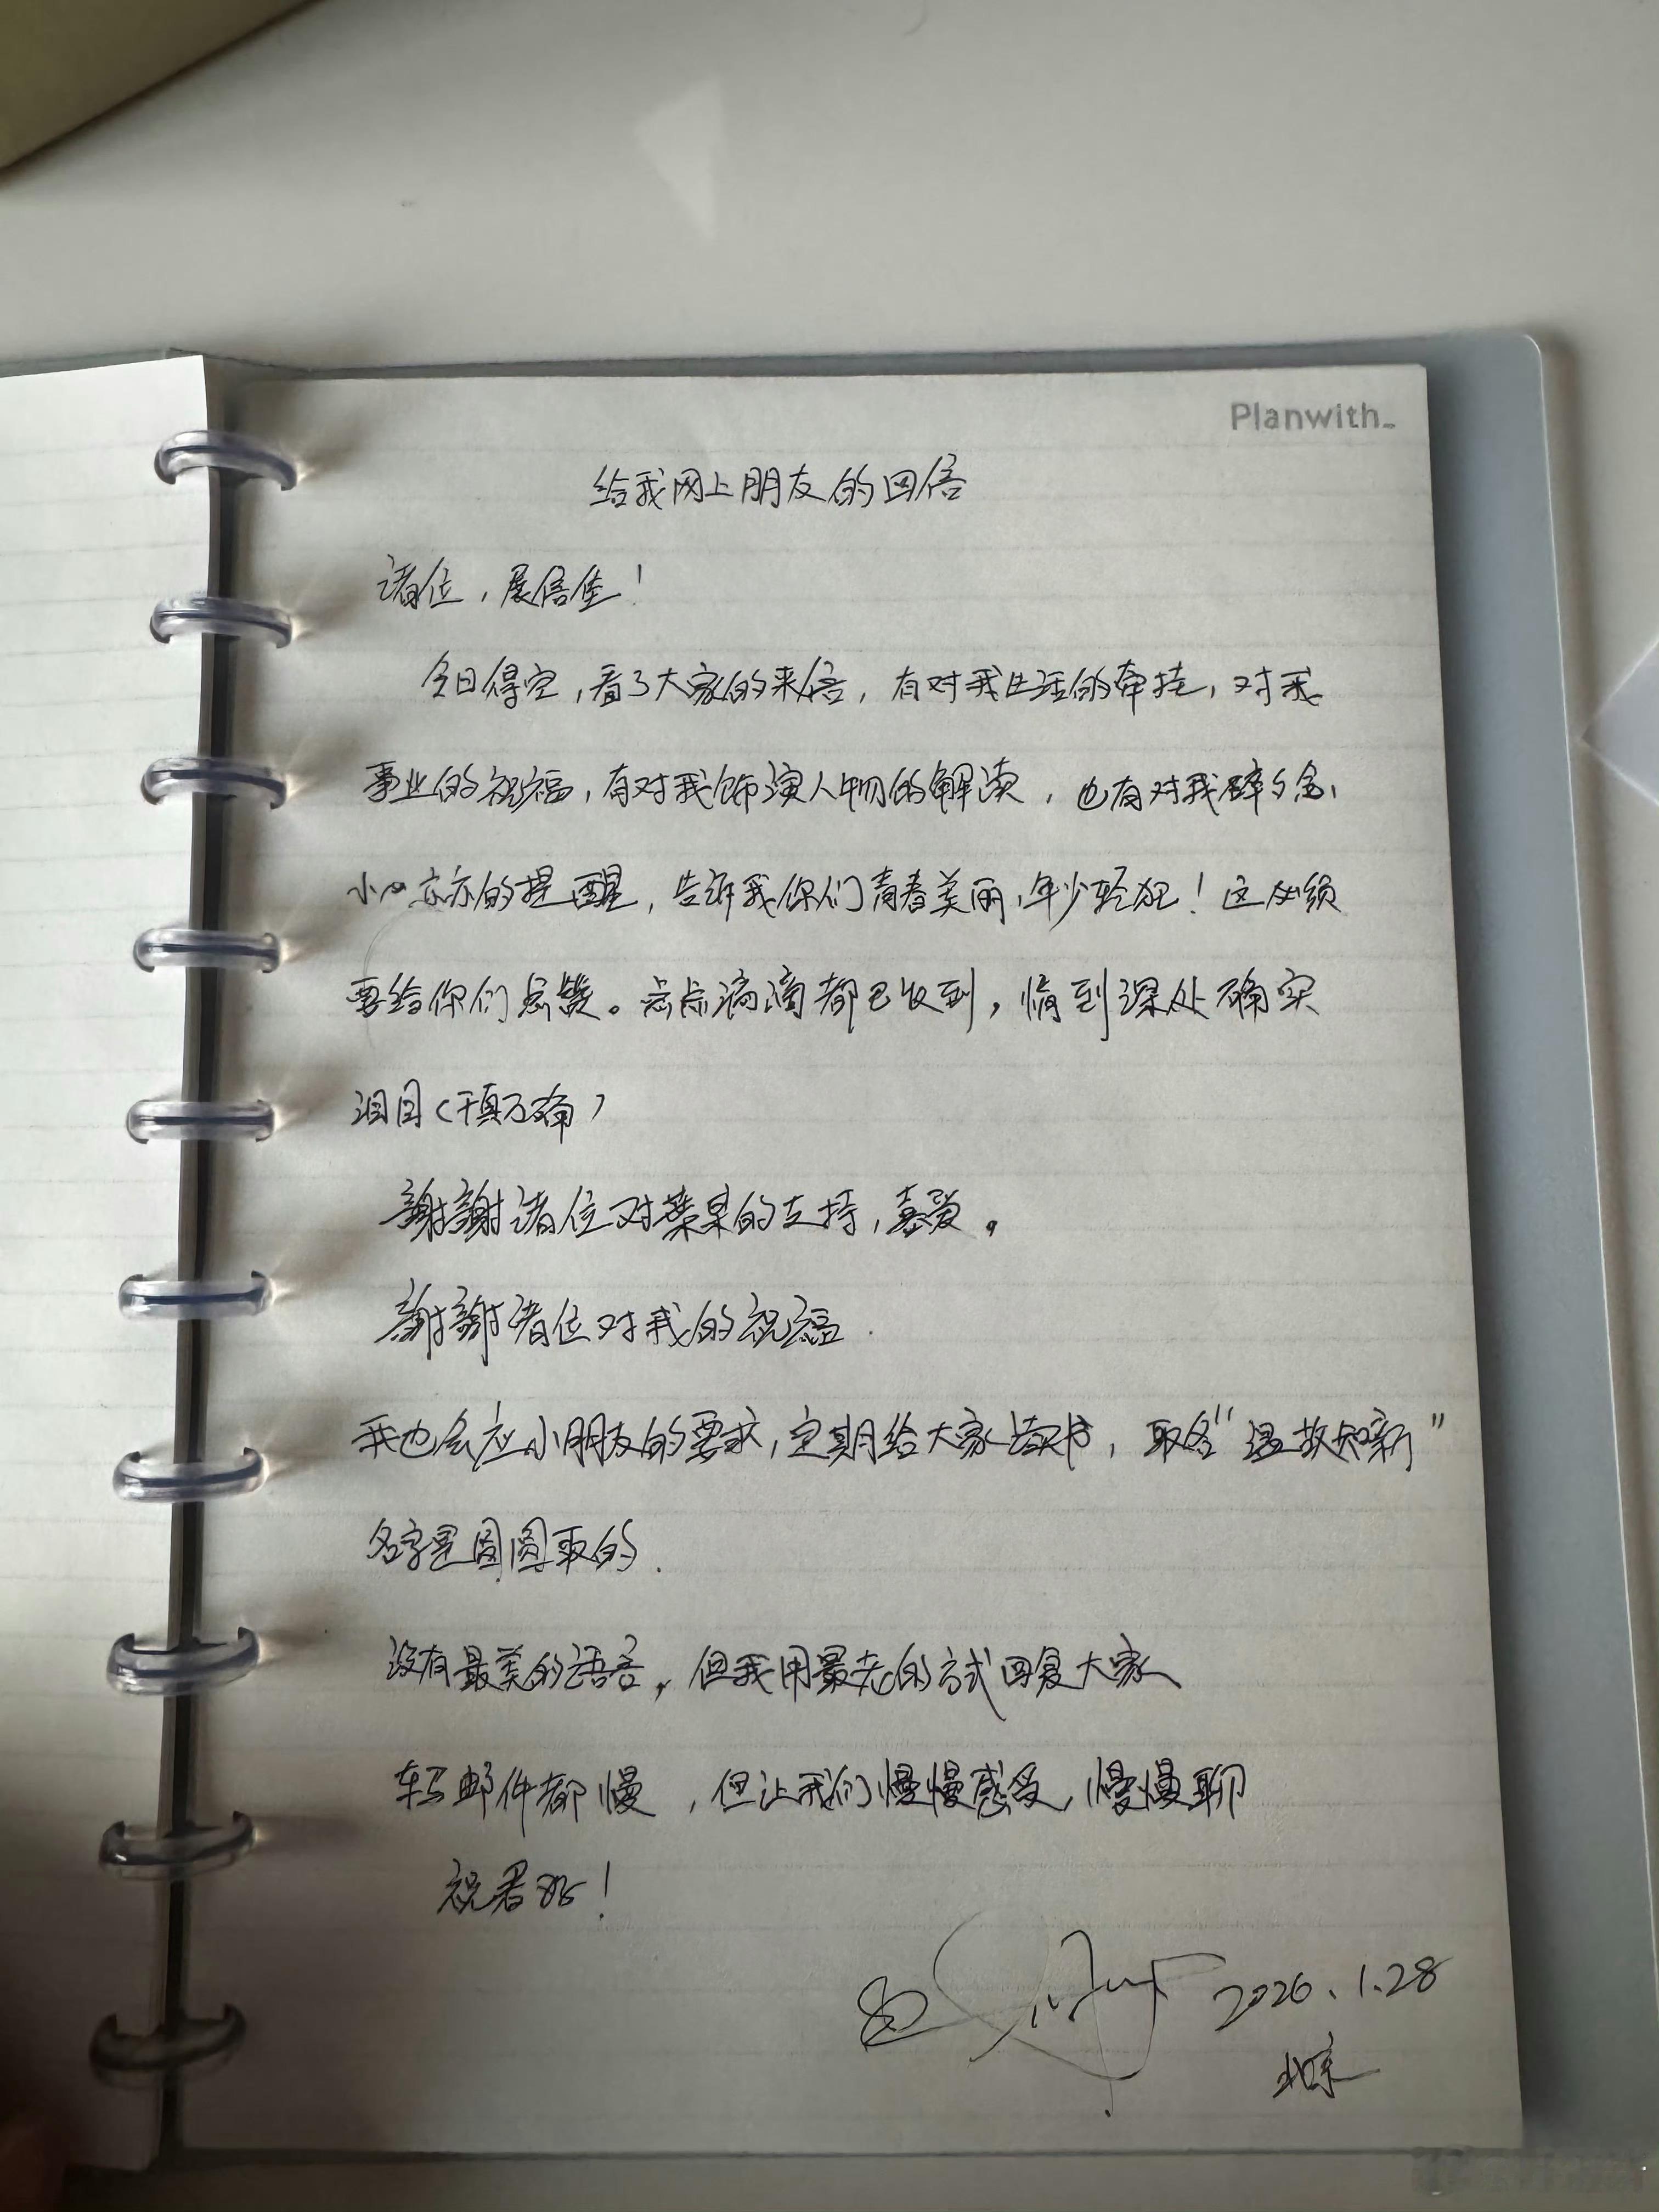 Planwith_
给我网上朋友的回信
诸位，展信佳！
今日得空，看了大家的来信，有对我生活的牵挂，对我
事业的祝福，有对我饰演人物的解读，也有对我碎碎念，
小心亦亦的提醒，告诉我你们青春美丽，年少轻狂！这必须
要给你们点赞。点点滴滴都已收到，情到深处确实
泪目（千真万确）
谢谢诸位对葉某的支持，喜爱。
谢谢诸位对我的祝福.
我也会应小朋友的要求，定期给大家读书，取名“温故知新”
名字是圆圆取的.
没有最美的语言，但我用最老的方式回复大家
车马邮件都慢，但让我们慢慢感受，慢慢聊
祝君好！
2026.1.28
北京